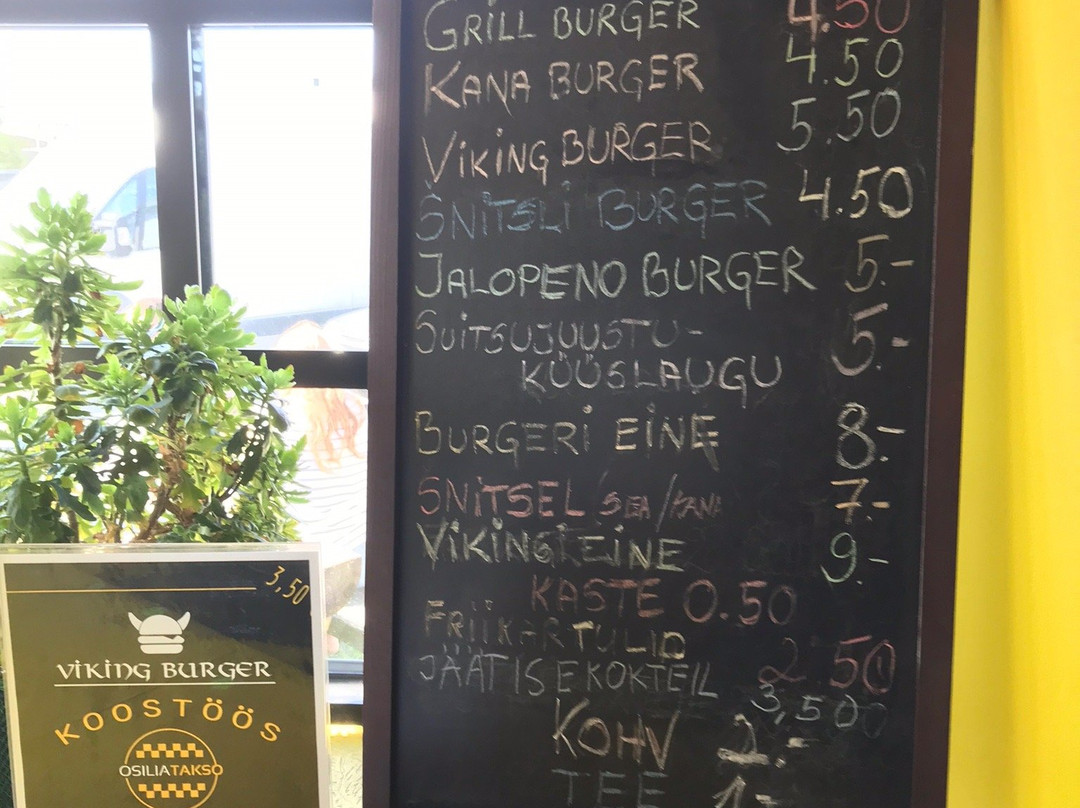 GRILL BURGER 4.50
KANA BURGER 4.50
VIKING BURGER 5.50
ŠNITSLI BURGER 4.50
JALOPENO BURGER 5.-
SUITSUJUUSTU-
KÜÜSLAUGU 5.-
BURGERI EINE 8.-
ŠNITSEL SEA/KANA 7.-
VIKINGI EINE 9.-
KASTE 0.50
FRIIKARTULID 2.50
JÄÄTISEKOKTEIL 3,50
KOHV 2.-
TEE 1.-
3,50
VIKING BURGER
KOOSTÖÖS
OSILIATAKSO